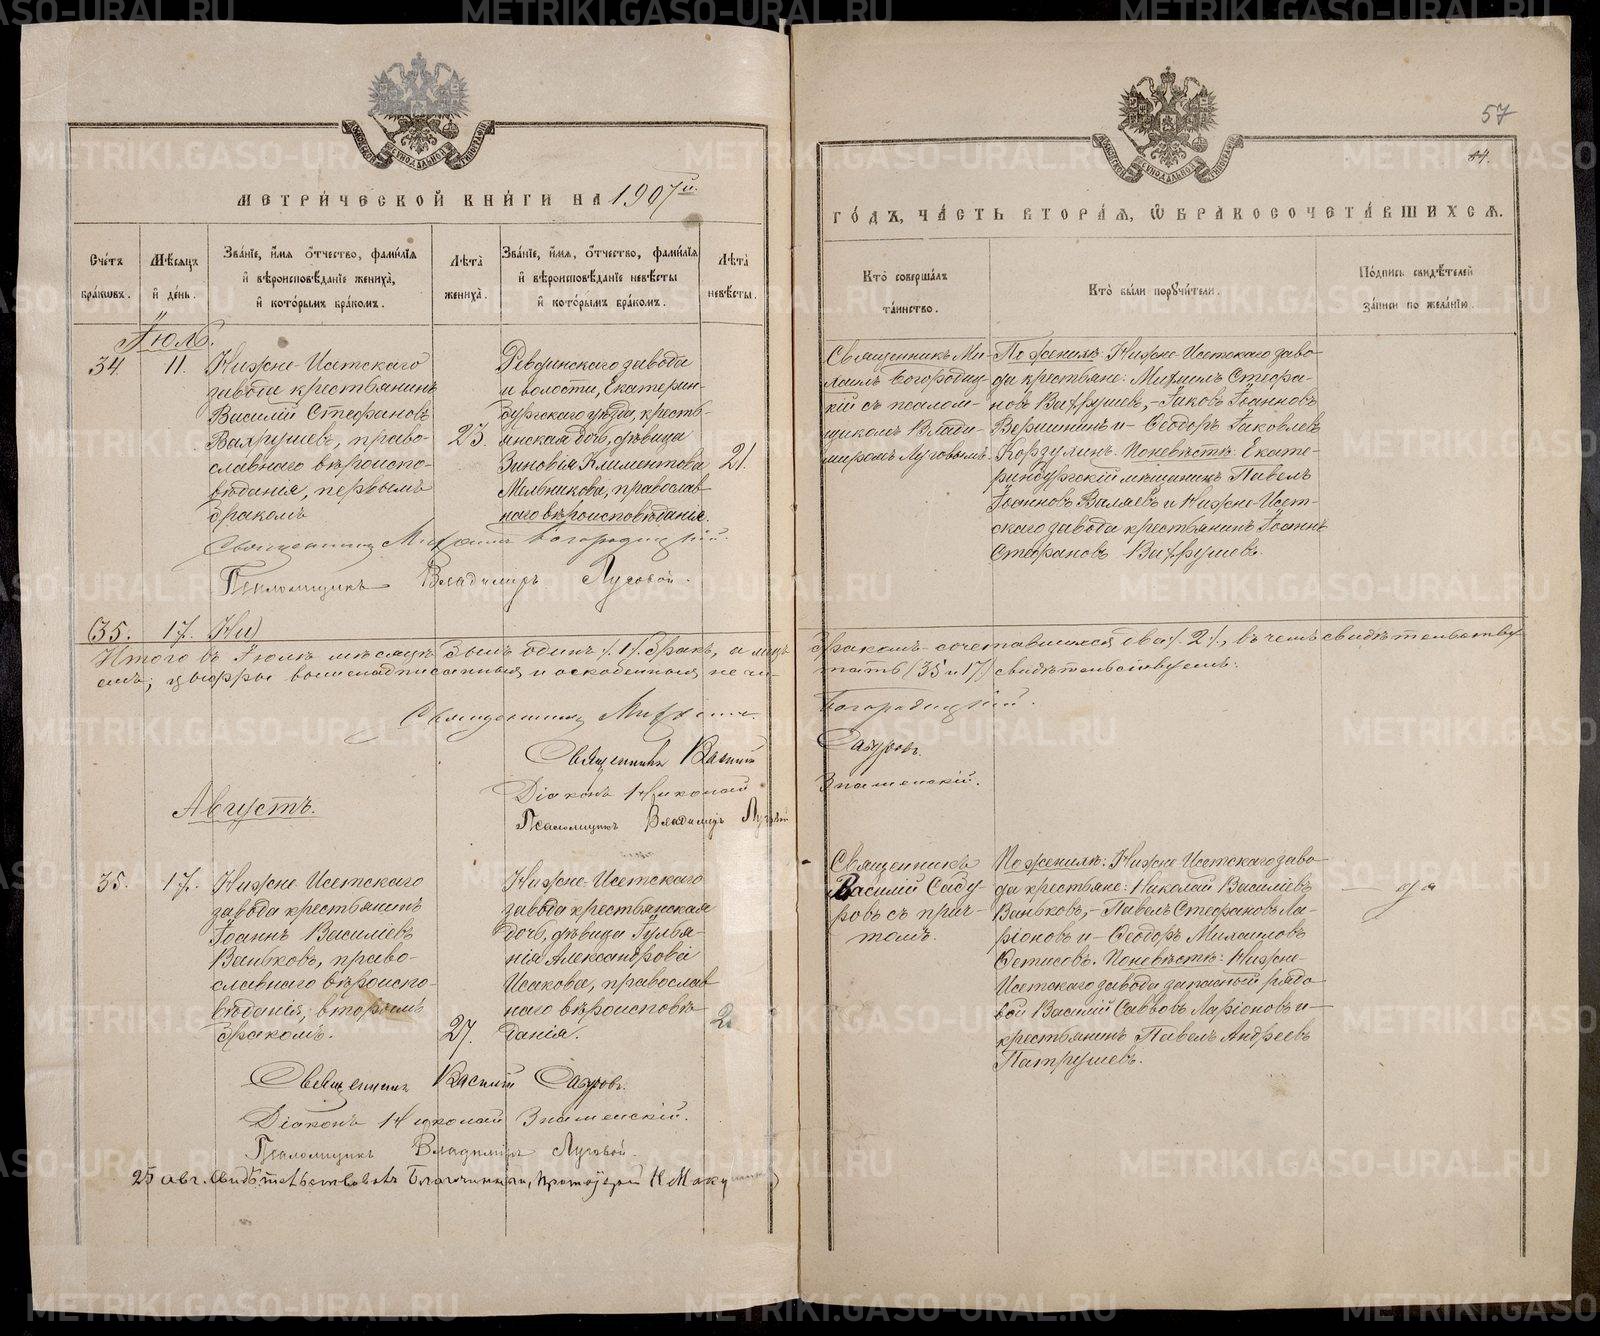 57
14.
МЕТРИЧЕСКОЙ КНИГИ НА 1907й
ГОДЪ, ЧАСТЬ ВТОРАЯ, Ѡ БРАКОСОЧЕТАВШИХСЯ.
Счетъ браковъ.
Мѣсяцъ и день.
Званіе, имя отчество, фамилія и вѣроисповѣданіе жениха, и которымъ бракомъ.
Лѣта жениха.
Званіе, имя, отчество, фамилія и вѣроисповѣданіе невѣсты и которымъ бракомъ.
Лѣта невѣсты.
Кто совершалъ таинство.
Кто были поручители.
Подпись свидѣтелей записи по желанію.
Іюль.
34. 11.
Нижне-Исетскаго
завода крестьянинъ
Василій Стефановъ
Вахрушевъ, право-
славнаго вѣроиспо-
вѣданія, первымъ
бракомъ
23.
Ревдинскаго завода
и волости, Екатерин-
бургскаго уѣзда, кресть-
янская дочь, дѣвица
Зиновія Климентова
Мельникова, православ
наго вѣроисповѣданія.
21.
Священникъ Ми-
хаилъ Богородиц-
кій съ псалом-
щикомъ Влади-
миромъ Луговымъ.
По женихѣ: Нижне-Исетскаго заво-
да крестьяне: Михаилъ Стефа-
новъ Вахрушевъ, – Іаковъ Іоанновъ
Вершининъ и – Ѳеодоръ Іаковлевъ
Корзухинъ. По невѣстѣ: Екате-
ринбургскій мѣщанинъ Павелъ
Іоанновъ Валяевъ и Нижне-Исет-
скаго завода крестьянинъ Іоаннъ
Стефановъ Вахрушевъ.
Священникъ Михаилъ Богородицкій.
Псаломщикъ Владимиръ Луговой.
(35. 17. Ни)
Итого въ Іюлѣ мѣсяцѣ былъ одинъ /.1/. бракъ, а лицъ бракомъ сочетавшихся два /. 2 /., въ чемъ свидѣтельству
емъ; цыфры вышенадписанныя и оскобленныя не чи- тать (35 и 17) свидѣтельствуемъ:
Священникъ Михаилъ Богородицкій.
Священникъ Василій Сапуровъ.
Діаконъ Николай Знаменскій.
Псаломщикъ Владимиръ Луговой
Августъ.
35. 17.
Нижне-Исетскаго
завода крестьянинъ
Іоаннъ Василіевъ
Ваньковъ, право-
славнаго вѣроиспо-
вѣданія, вторымъ
бракомъ.
27.
Нижне-Исетскаго
завода крестьянская
дочь, дѣвица Іуліа-
нія Александрова
Исакова, православ
наго вѣроисповѣ-
данія.
2
Священникъ
Василій
ровъ съ прич-
томъ.
По женихѣ: Нижне-Исетскаго заво-
да крестьяне: Николай Василіевъ
Ваньковъ, – Павелъ Стефановъ Ла-
ріоновъ и – Ѳеодоръ Михаиловъ
Ѳетисовъ. По невѣстѣ: Нижне-
Исетскаго завода запасный рядо
вой Василій Савовъ Ларіоновъ и –
крестьянинъ Павелъ Андреевъ
Патрушевъ.
Священникъ Василій
Діаконъ Николай Знаменскій.
Псаломщикъ Владимиръ Луговой.
25 авг. свидѣтельствовалъ Благочинный, протоіерей Н Маку
METRIKI.GASO-URAL.RU